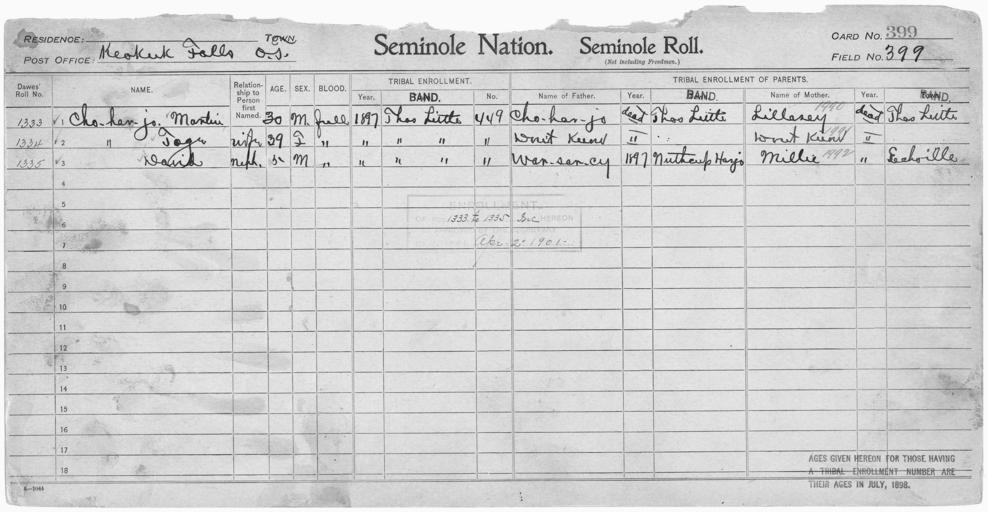 RESIDENCE: TOWN. Seminole Nation. Seminole Roll. CARD NO. 399
POST OFFICE: Keokuk Falls O.T. (Not including Freedmen.) FIELD NO. 399
Dawes' Roll No. NAME. Relationship to Person first Named. AGE. SEX. BLOOD. TRIBAL ENROLLMENT. TRIBAL ENROLLMENT OF PARENTS.
Year. BAND. No. Name of Father. Year. BAND. Name of Mother. Year. BAND.
1333 1 Cho-han-jo, Martin 30 M. full 1897 Thos Little 449 Cho-han-jo dead Thos Little Lillasey 1990 dead Thos Little
1334 2 " wife 39 F " " " " " Don't Know " Don't Know "
1335 3 " David neph. 5 M " " " " " Wan-san-cy 1897 Nuthcup Harjo Millie 1992 " Echoille
4
5
ENROLLMENT
6 1333 to 1335 Inc HEREON
7 Apr 2- 1901
8
9
10
11
12
13
14
15
16
17 AGES GIVEN HEREON FOR THOSE HAVING
18 A TRIBAL ENROLLMENT NUMBER ARE
THEIR AGES IN JULY, 1898.